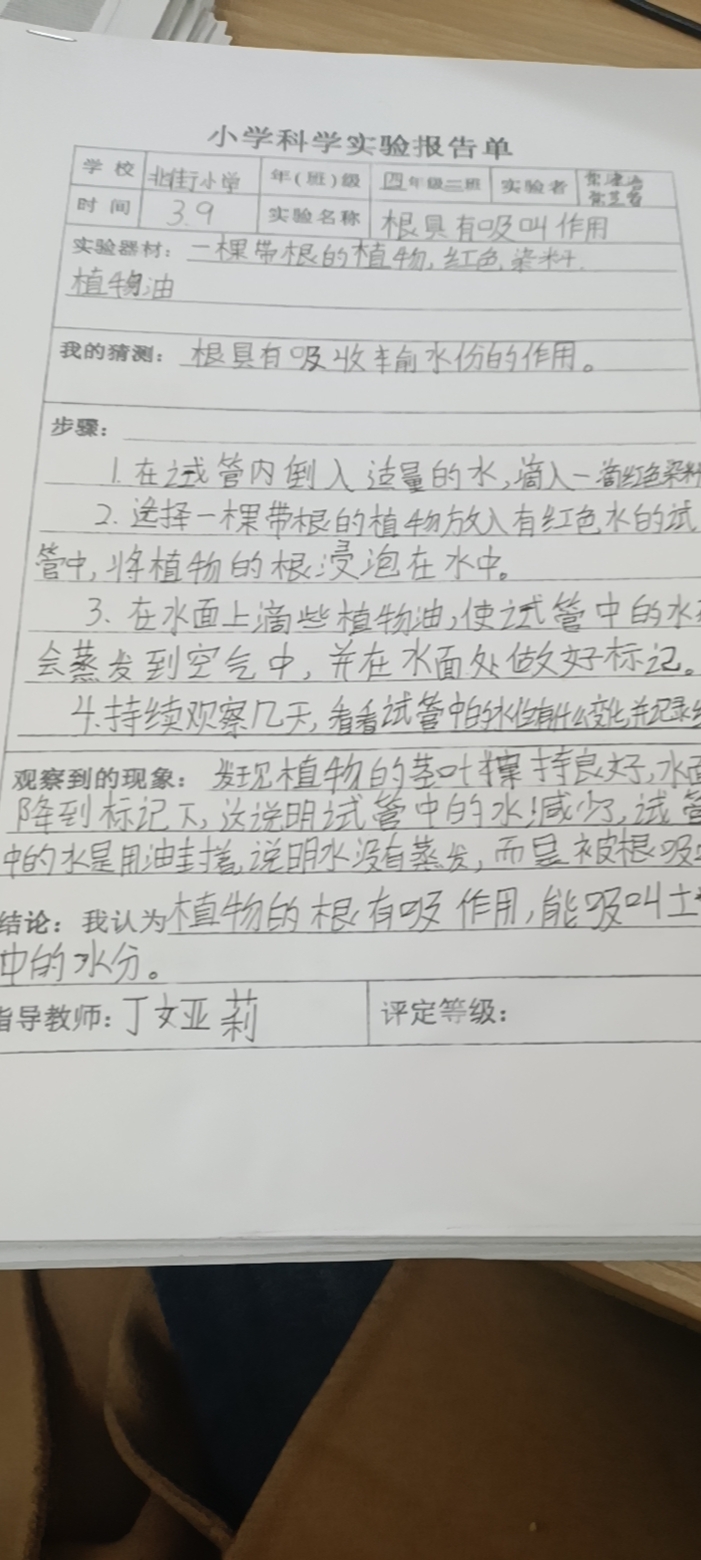 小学科学实验报告单
学校 北街小学 年(班)级 四年级三班 实验者
时间 3.9 实验名称 根具有吸叫作用
实验器材：一棵带根的植物,红色染料.
植物油
我的猜测：根具有吸收丰俞水份的作用。
步骤：
1.在试管内倒入适量的水,滴入一滴红色染料
2.选择一棵带根的植物放入有红色水的试
管中,将植物的根浸泡在水中。
3.在水面上滴些植物油,使试管中的水
会蒸发到空气中,并在水面处做好标记。
4.持续观察几天,看看试管中的水位有什么变化,并记录
观察到的现象：发现植物的茎叶保持良好,水面
降到标记下,这说明试管中的水减少了,试管
中的水是用油封着,说明水没有蒸发,而是被根吸
结论：我认为植物的根有吸作用,能吸叫土
中的水分。
指导教师：丁文亚莉 评定等级：